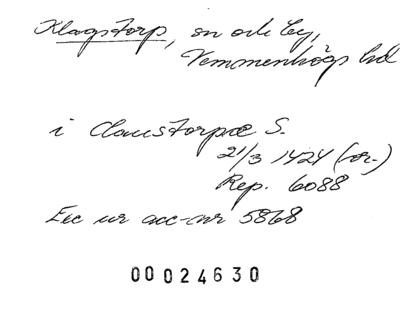 Klagstorp, sn och by,
Vemmenhögs hd
i Claustorpæ S.
21/3 1424 (or.)
Rep. 6088
Exc ur acc-nr 5868
00024630